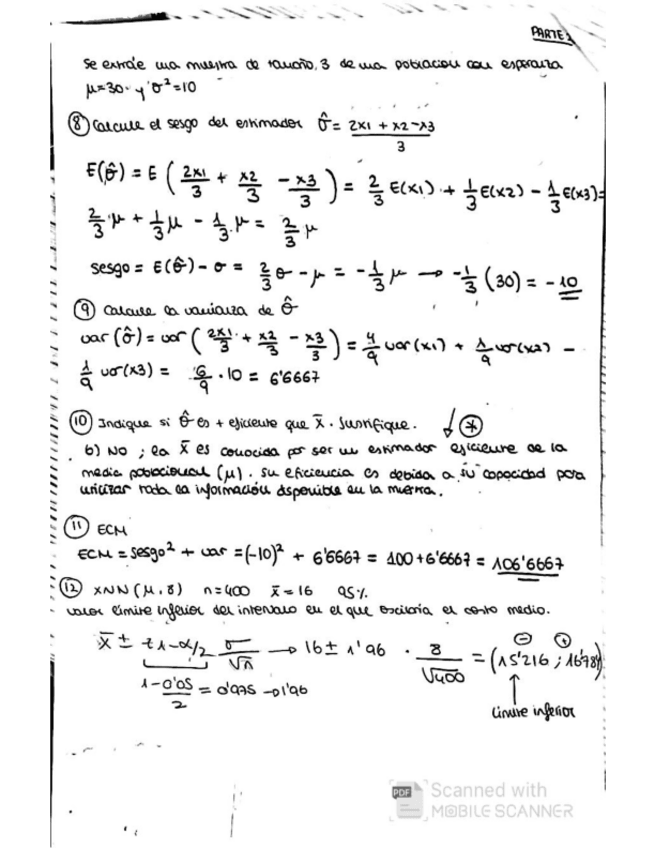 PARTE 2
Se extrae una muestra de tamaño 3 de una población con esperanza
μ=30 y σ²=10
⑧ Calcule el sesgo del estimador σ̂ = (2x1 + x2 - x3)/3
E(σ̂) = E ( 2x1/3 + x2/3 - x3/3 ) = 2/3 E(x1) + 1/3 E(x2) - 1/3 E(x3) =
2/3 μ + 1/3 μ - 1/3 μ = 2/3 μ
sesgo = E(σ̂) - σ = 2/3 σ - μ = - 1/3 μ → - 1/3 (30) = - 10
⑨ Calcule la varianza de σ̂
var (σ̂) = var ( 2x1/3 + x2/3 - x3/3 ) = 4/9 var(x1) + 1/9 var(x2) -
1/9 var(x3) = 6/9 · 10 = 6'6667
⑩ Indique si σ̂ es + eficiente que x̄. Justifique. ↓ ⊛
b) NO ; la x̄ es conocida por ser un estimador eficiente de la
media poblacional (μ). Su eficiencia es debida a su capacidad para
utilizar toda la información disponible en la muestra.
⑪ ECM
ECM = sesgo² + var = (-10)² + 6'6667 = 100 + 6'6667 = 106'6667
⑫ x~N (μ, 8) n=400 x̄=16 95%
valor límite inferior del intervalo en el que oscilaría el costo medio.
x̄ ± z1-α/2 σ/√n → 16 ± 1'96 · 8/√400 = (15'216 ; 16'784)
⊖ ⊕
1 - 0'05/2 = 0'975 → 1'96
límite inferior
PDF Scanned with
MOBILE SCANNER